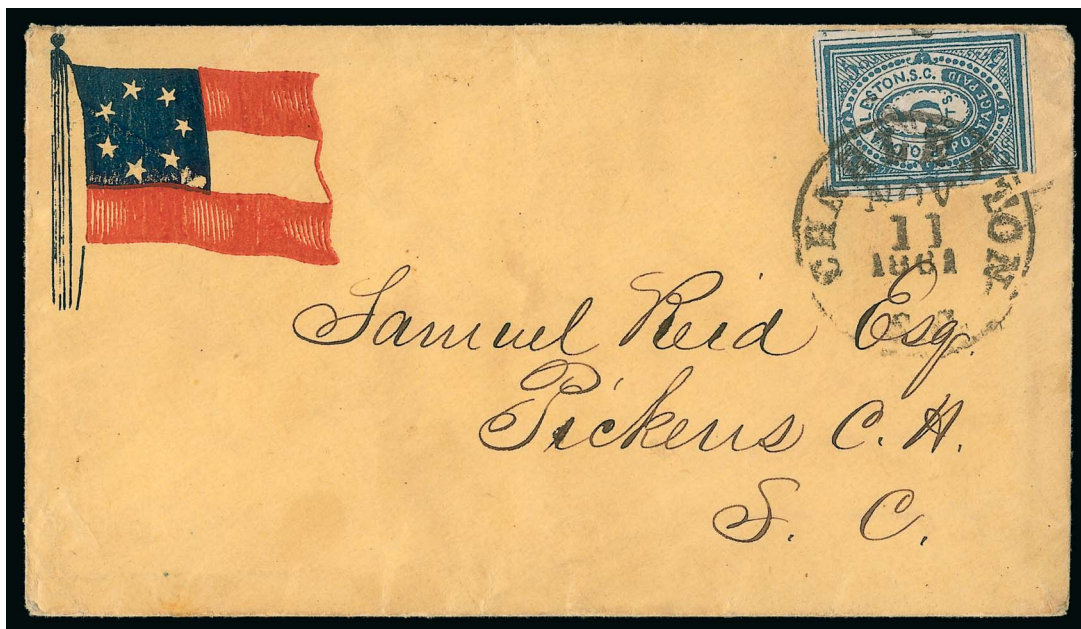 ESTON.S.C.
POSTAGE PAID
5
CHARLESTON
NOV
11
1861
S.C.
Samuel Reid Esq.
Pickens C. H.
S. C.